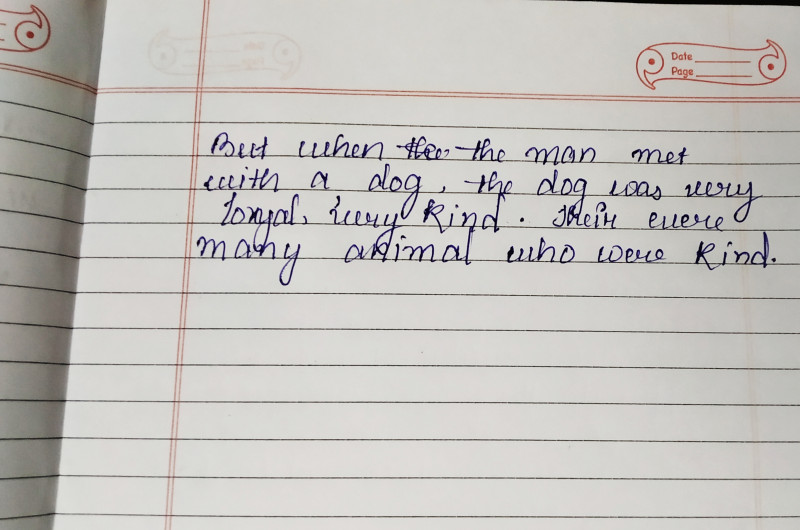 Date
Page
But when the the man met
with a dog, the dog was very
loryal, very kind. Their were
many animal who were kind.